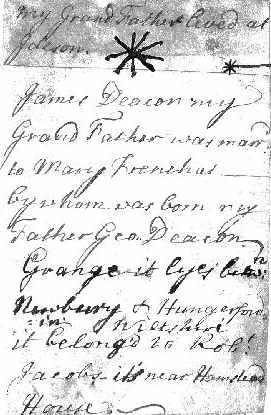 my Grand Father lived at
James Deacon my
Grand Father was marr
to Mary Frenchus
by whom was born my
Father Geo. Deacon
Grange it lyes betwn
Newbury & Hungerford
in Wiltshire
it belong'd to Robt
Jacobs its near Hamstead
House